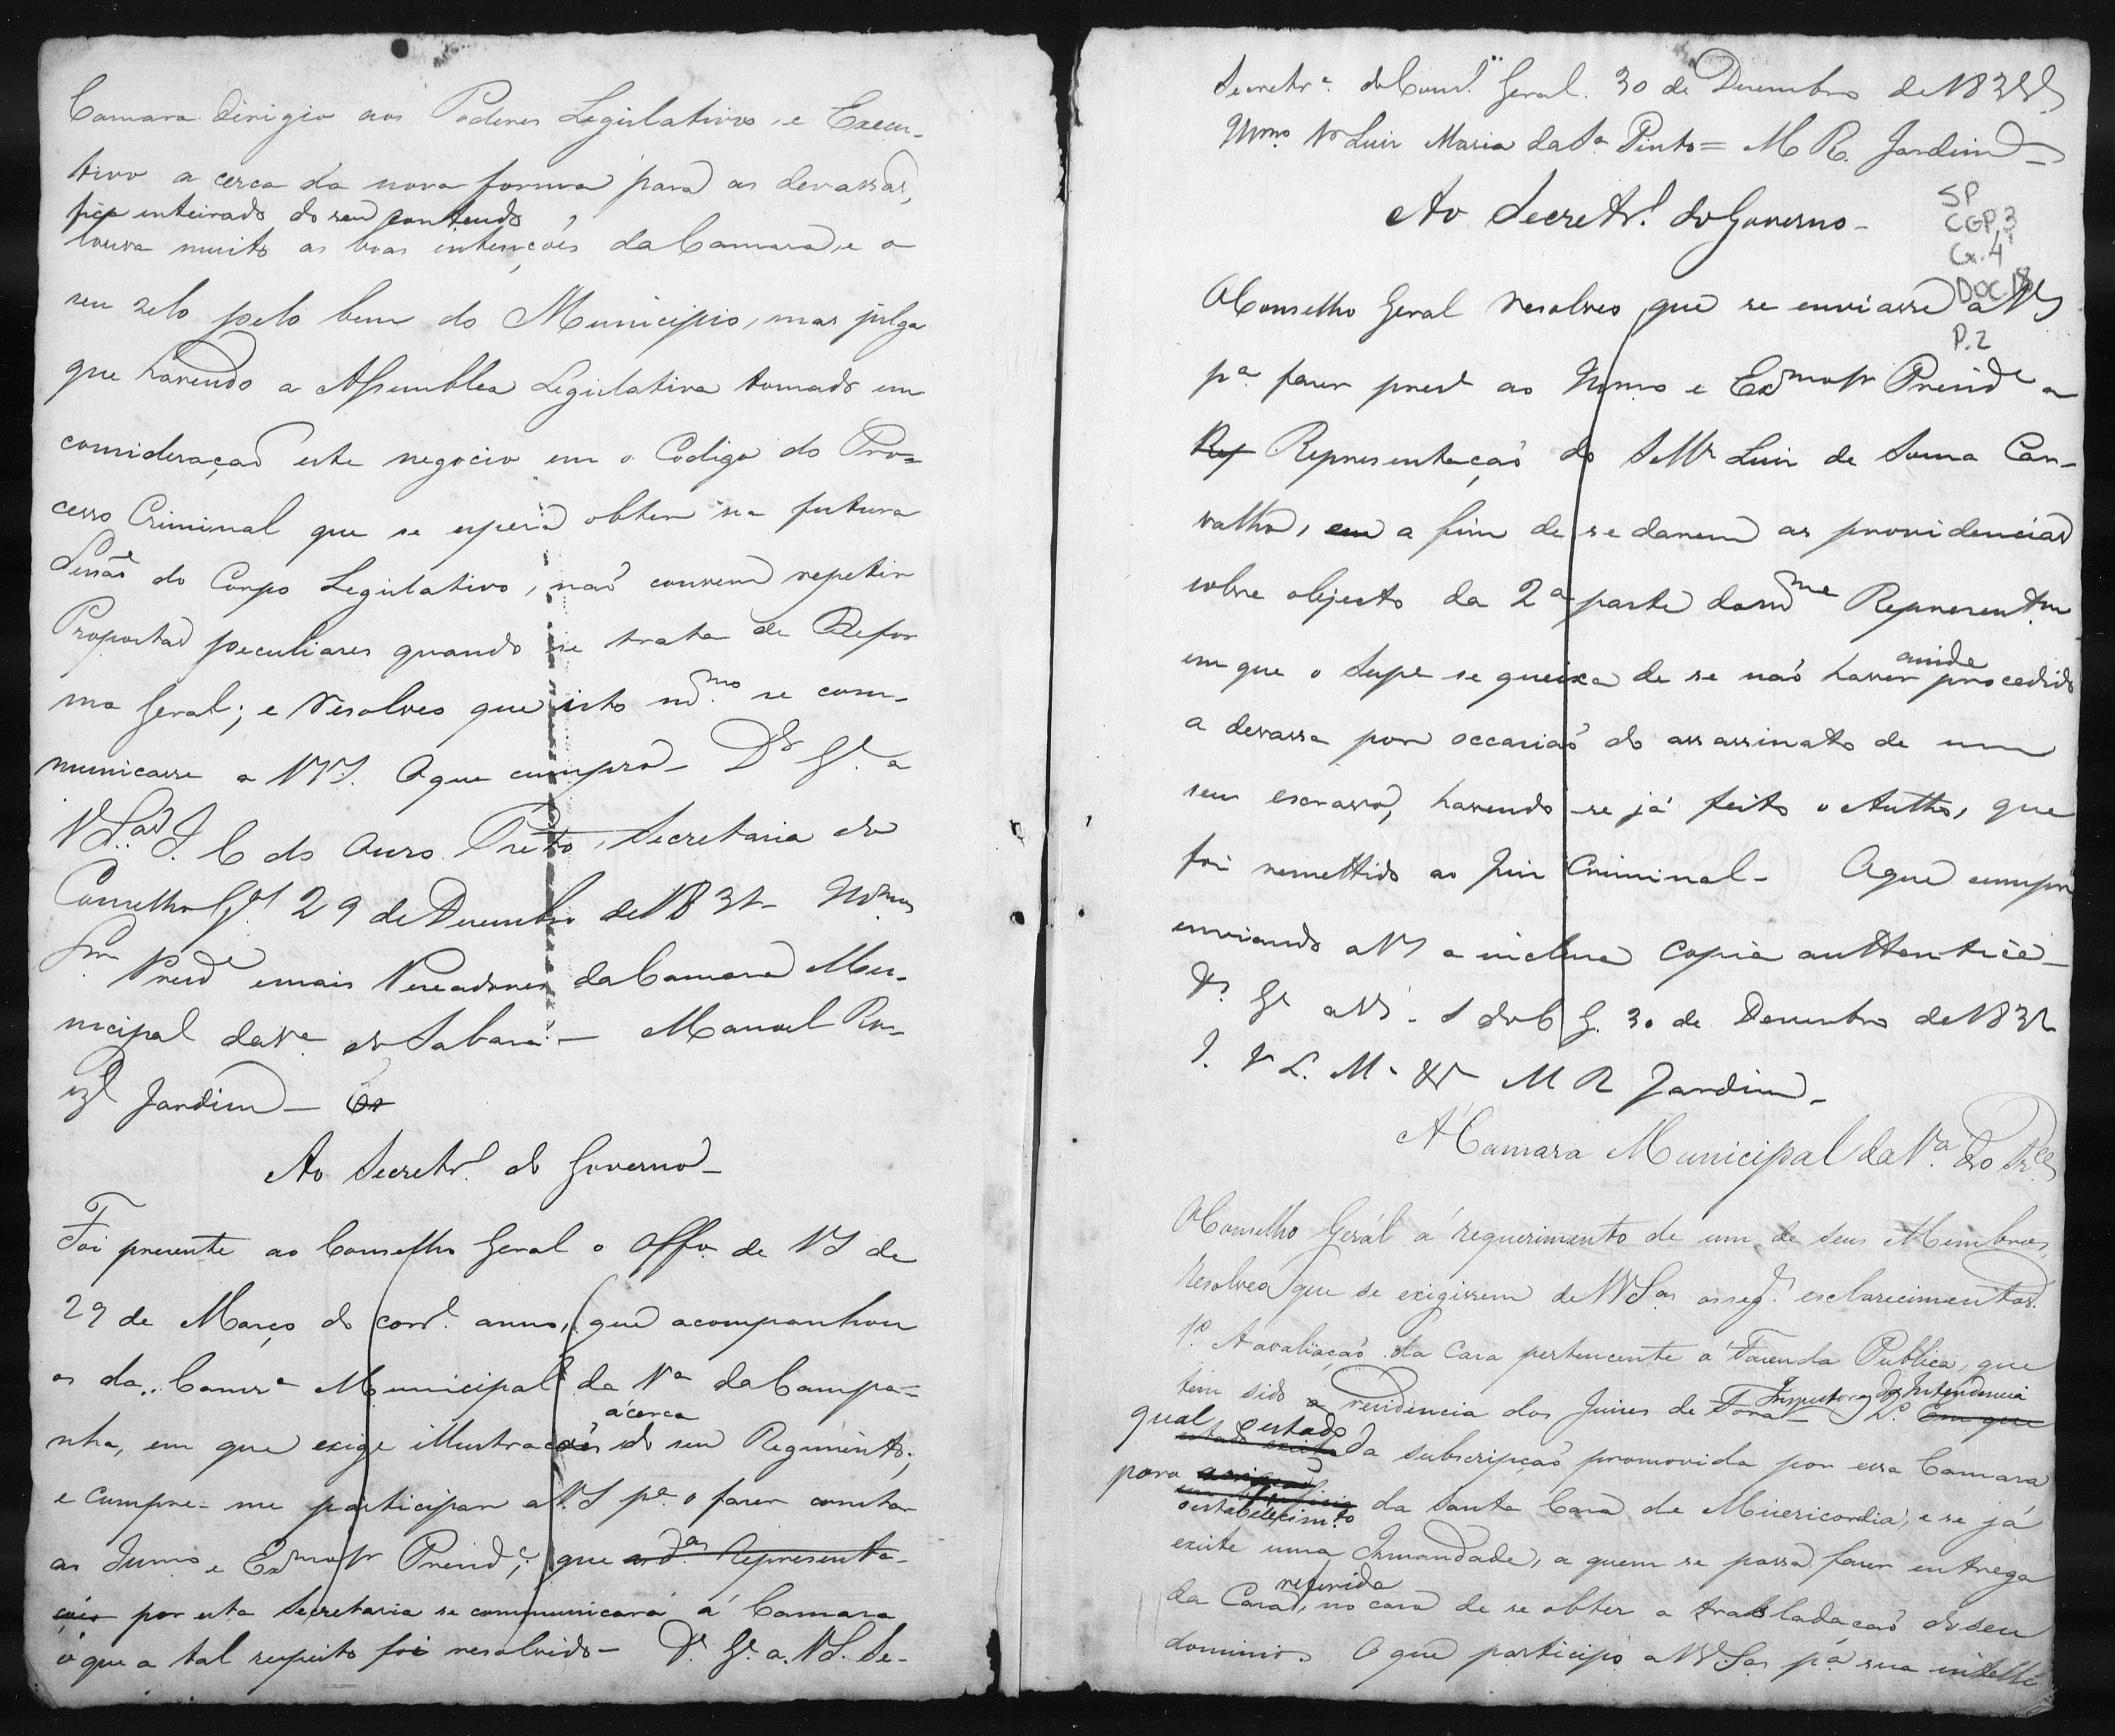 Camara dirigio aos Poderes Legislativo, e Execu-
tivo a cerca da nova forma para as devassas,
fica inteirado do seu contendo
louva muito as boas intenções da Camara, e o
seu zelo pelo bem do Municipio, mas julga
que havendo a Assemblea Legislativa tomado em
consideração este negocio em o Codigo do Pro=
cesso Criminal que se espera obter na futura
Sessão do Corpo Legislativo, não convem repetir
Propostas peculiares quando se trata de Refor
ma Geral; e resolveo que isto m.mo se com-
municasse a VV.SS. O que cumpro - D.s G.e a
V.S.as I. C do Ouro Preto, Secretaria do
Conselho G.al 29 de Dezembro de 1831 - Ill.mos
Snr. Presid.e e mais Vereadores da Camara Mu-
nicipal da V.a do Sabará - Manoel Roi-
z Jardim -
Ao Secretr.o do Governo -
Foi presente ao Conselho Geral o Off.o de VS de
29 de Março do corr.e anno, que acompanhou
os da Camr.a Municipal da V.a da Campa-
nha, em que exige illustrações ácerca do seu Regimento;
e cumpre-me participar a V.S p.a o fazer constar
ao Illmo e Exmo Sr Presid.e, que as d.as Representa-
ções por esta Secretaria se communicará á Camara
o que a tal respeito foi resolvido - D.s G.e a. V.S. Se-
Secretr.a do Cons.o Geral. 30 de Dezembro de 1831
Illmo Sr Luiz Maria da S.a Pinto = M R. Jardim -
Ao Secretr.o do Governo -
SP
CGP, 3
Cx. 4
DOC.18
P. 2
O Conselho Geral resolveo, que se enviasse a VS
p.a fazer prest.e ao Illmo e Exmo Sr Presid.e a
Rep Representação do S Mr Luiz de Souza Car-
valho, em a fim de se darem as providencias
sobre objecto da 2a parte da m.ma Represent.am
em que o Supe se queixa de se não haver ainda procedido
a devassa por occasião do assassinato de um
seu escravo, havendo-se já feito o Autho, que
foi remettido ao Juiz Criminal - O que cumpro
enviando a VS a inclusa copia authentica -
D.s G.e a VS. S do C G. 30 de Dezembro de 1831
I. Sr L. M. da S.a M R Jardim -
A' Camara Municipal da V.a do
O Conselho Geral á requerimento de um de seus Membros,
resolveo que se exigissem de VV.S.as os seg.es esclarecimentos.
1.o A avaliação da Casa pertencente á Fazenda Publica, que
tem sido a residencia dos Juizes de Fora Inspector da Intendencia 2.o Em que
qual o estado
estado existe da subscripção promovida por essa Camara
para
o estabelecim.to da Santa Casa de Misericordia, e se já
existe uma Irmandade, a quem se possa fazer entrega
da Casa referida, no caso de se obter a trasladação do seu
dominio. O que participo a VV.S.as p.a sua intelli